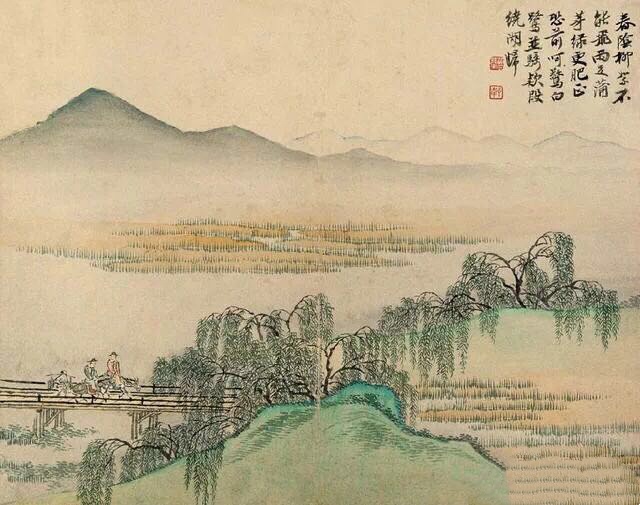 春陰柳絮不
能飛雨足蒲
芽綠更肥正
恐前呵驚白
鷺並騎款段
繞湖歸